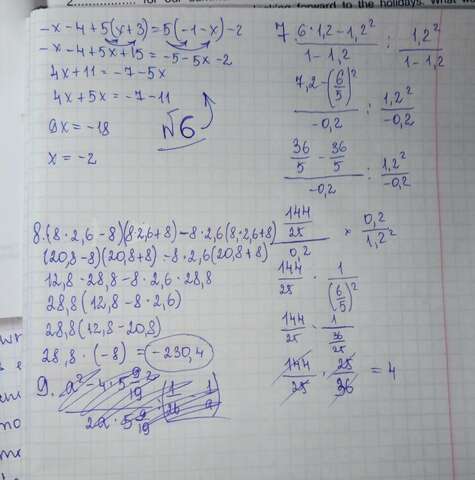 for our
looking forward to the holidays. What
-x-4+5(x+3)=5(-1-x)-2
-x-4+5x+15=-5-5x-2
4x+11=-7-5x
4x+5x=-7-11
9x=-18
x=-2
№6
7. (6·1,2-1,2²)/(1-1,2) : 1,2²/(1-1,2)
(7,2-(6/5)²)/(-0,2) : 1,2²/(-0,2)
(36/5-36/5)/(-0,2) : 1,2²/(-0,2)
(144/25)/0,2 × 0,2/1,2²
144/25 · 1/(6/5)²
144/25 · 1/(36/25)
144/25 · 25/36 = 4
8.(8·2,6-8)(8·2,6+8)-8·2,6(8·2,6+8)
(20,8-8)(20,8+8)-8·2,6(20,8+8)
12,8·28,8-8·2,6·28,8
28,8(12,8-8·2,6)
28,8(12,8-20,8)
28,8·(-8)=-230,4
9.